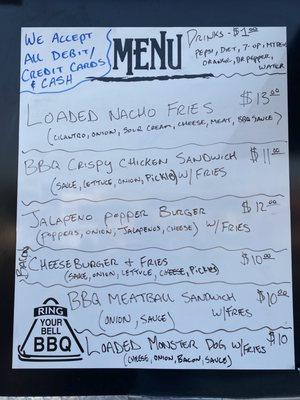 WE ACCEPT
ALL DEBIT/
CREDIT CARDS
& CASH
MENU
DRINKS - $1.00
PEPSI, DIET, 7-UP, MT DEW
ORANGE, DR PEPPER,
WATER
LOADED NACHO FRIES $13.00
(CILANTRO, ONION, SOUR CREAM, CHEESE, MEAT, BBQ SAUCE)
BBQ CRISPY CHICKEN SANDWICH $11.00
(SAUCE, LETTUCE, ONION, PICKLE) W/ FRIES
JALAPENO POPPER BURGER $12.00
(POPPERS, ONION, JALAPENOS, CHEESE) W/ FRIES
BACON
CHEESE BURGER + FRIES $10.00
(SAUCE, ONION, LETTUCE, CHEESE, PICKLES)
BBQ MEATBALL SANDWICH $10.00
(ONION, SAUCE) W/ FRIES
RING
YOUR
BELL
BBQ
LOADED MONSTER DOG W/ FRIES $10
(CHEESE, ONION, BACON, SAUCE)